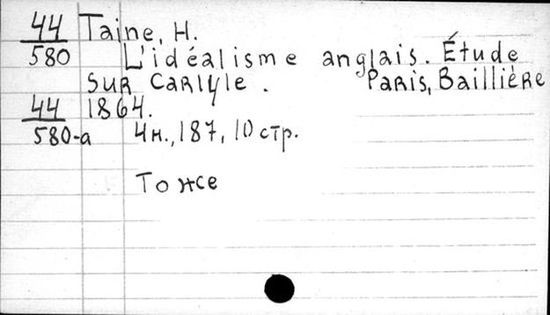 44/580 Taine, H.
L'idéalisme anglais. Étude
sur Carlyle. Paris, Baillière
44/580-a 1864.
4н., 187, 10 стр.
То же